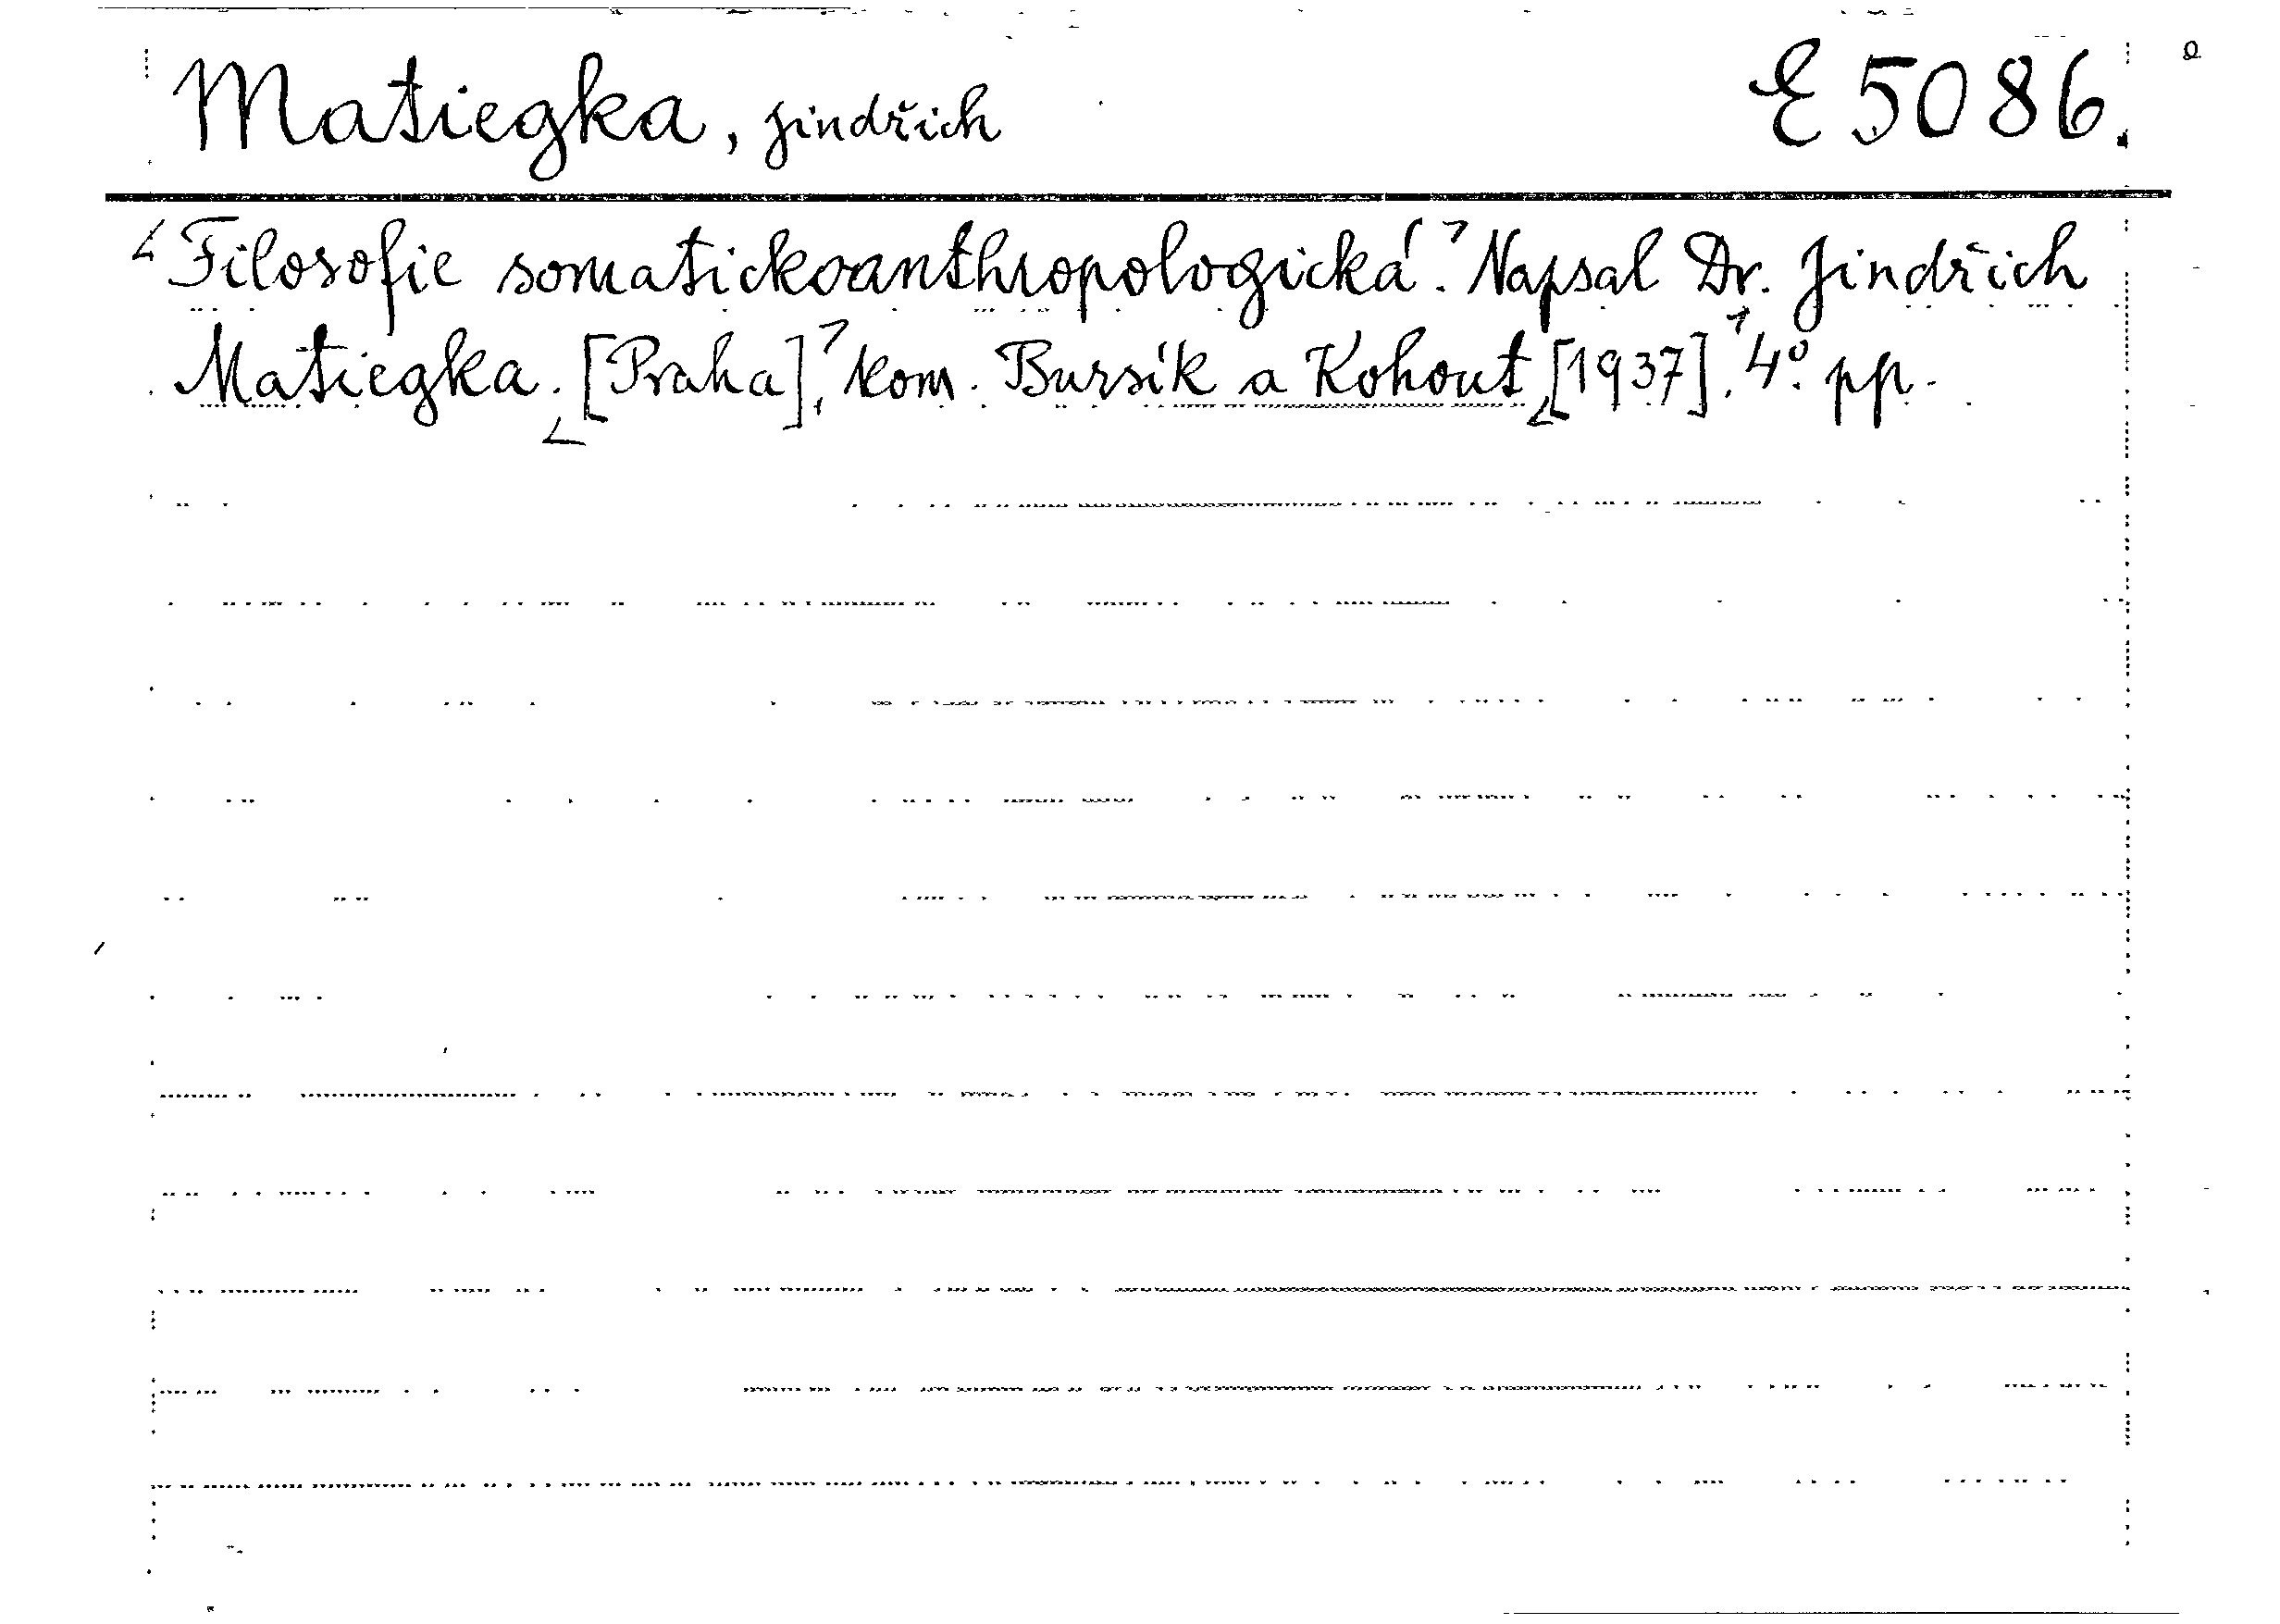 Matiegka, Jindřich E 5086.
Filosofie somatickoanthropologická. Napsal Dr. Jindřich
Matiegka. [Praha], kom. Bursík a Kohout, [1937]. 4°. pp.